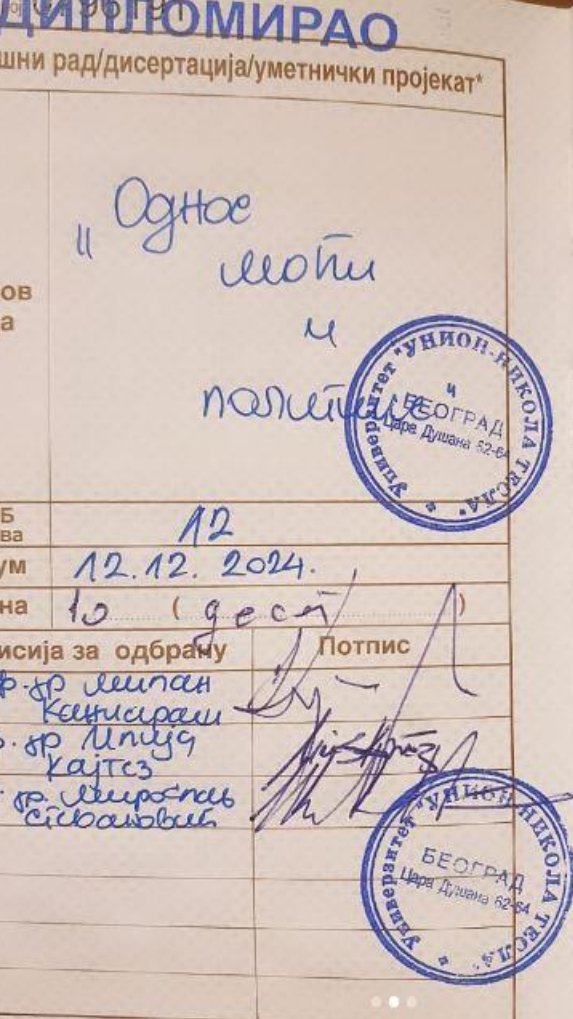 ДИПЛОМИРАО
шни рад/дисертација/уметнички пројекат*
„Однос
моћи
и
политике
ов
а
Универзитет "УНИОН-НИКОЛА ТЕСЛА"
и
БЕОГРАД
Цара Душана 62-64
Б
ва
12
ум
12.12. 2024.
на
10 (десет)
исија за одбрану
Потпис
др милан
др Илија
Кајтез
др. Мирослав
Стевановић
Универзитет "УНИОН-НИКОЛА ТЕСЛА"
БЕОГРАД
Цара Душана 62-64